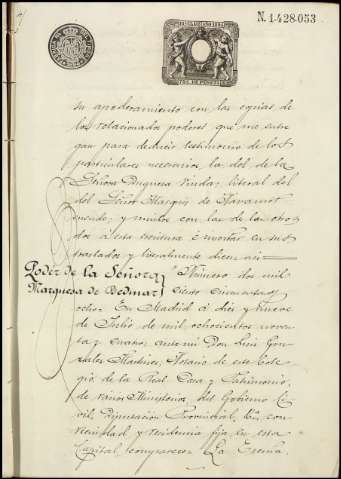 N. 1.428.053
su apoderamiento con las copias de
los relacionados poderes que me entre
gan para deducir testimonio de los
particulares necesarios la del de la
Señora Duquesa Viuda, literal del
del Señor Marqués de
y con las de los otor
á esta escritura é en sus
traslados y literalmente dicen asi
Poder de la Señora
Marquesa de Bedmar
Número dos mil
ciento cincuenta y
ocho. En Madrid á diez y nueve
de Julio de mil ochocientos noven
ta y cuatro ante mi Don Luis Gon
zalez Martinez, Notario de este Cole
gio de la Real Casa y Patrimonio,
de varios Ministerios del Gobierno Ci
vil, Diputacion Provincial, con
vecindad y residencia fija en esta
Capital, comparece: La Excma.